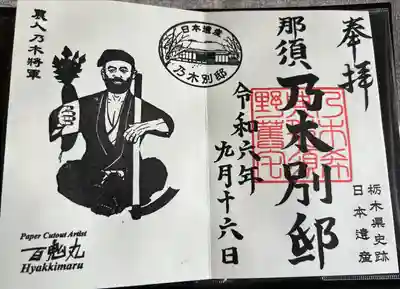 奉拝
那須乃木別邸
栃木県史跡
日本遺産
乃木希
野舊宅
令和六年
九月十六日
日本遺産
乃木別邸
農人乃木將軍
Paper Cutout Artist
百鬼丸
Hyakkimaru